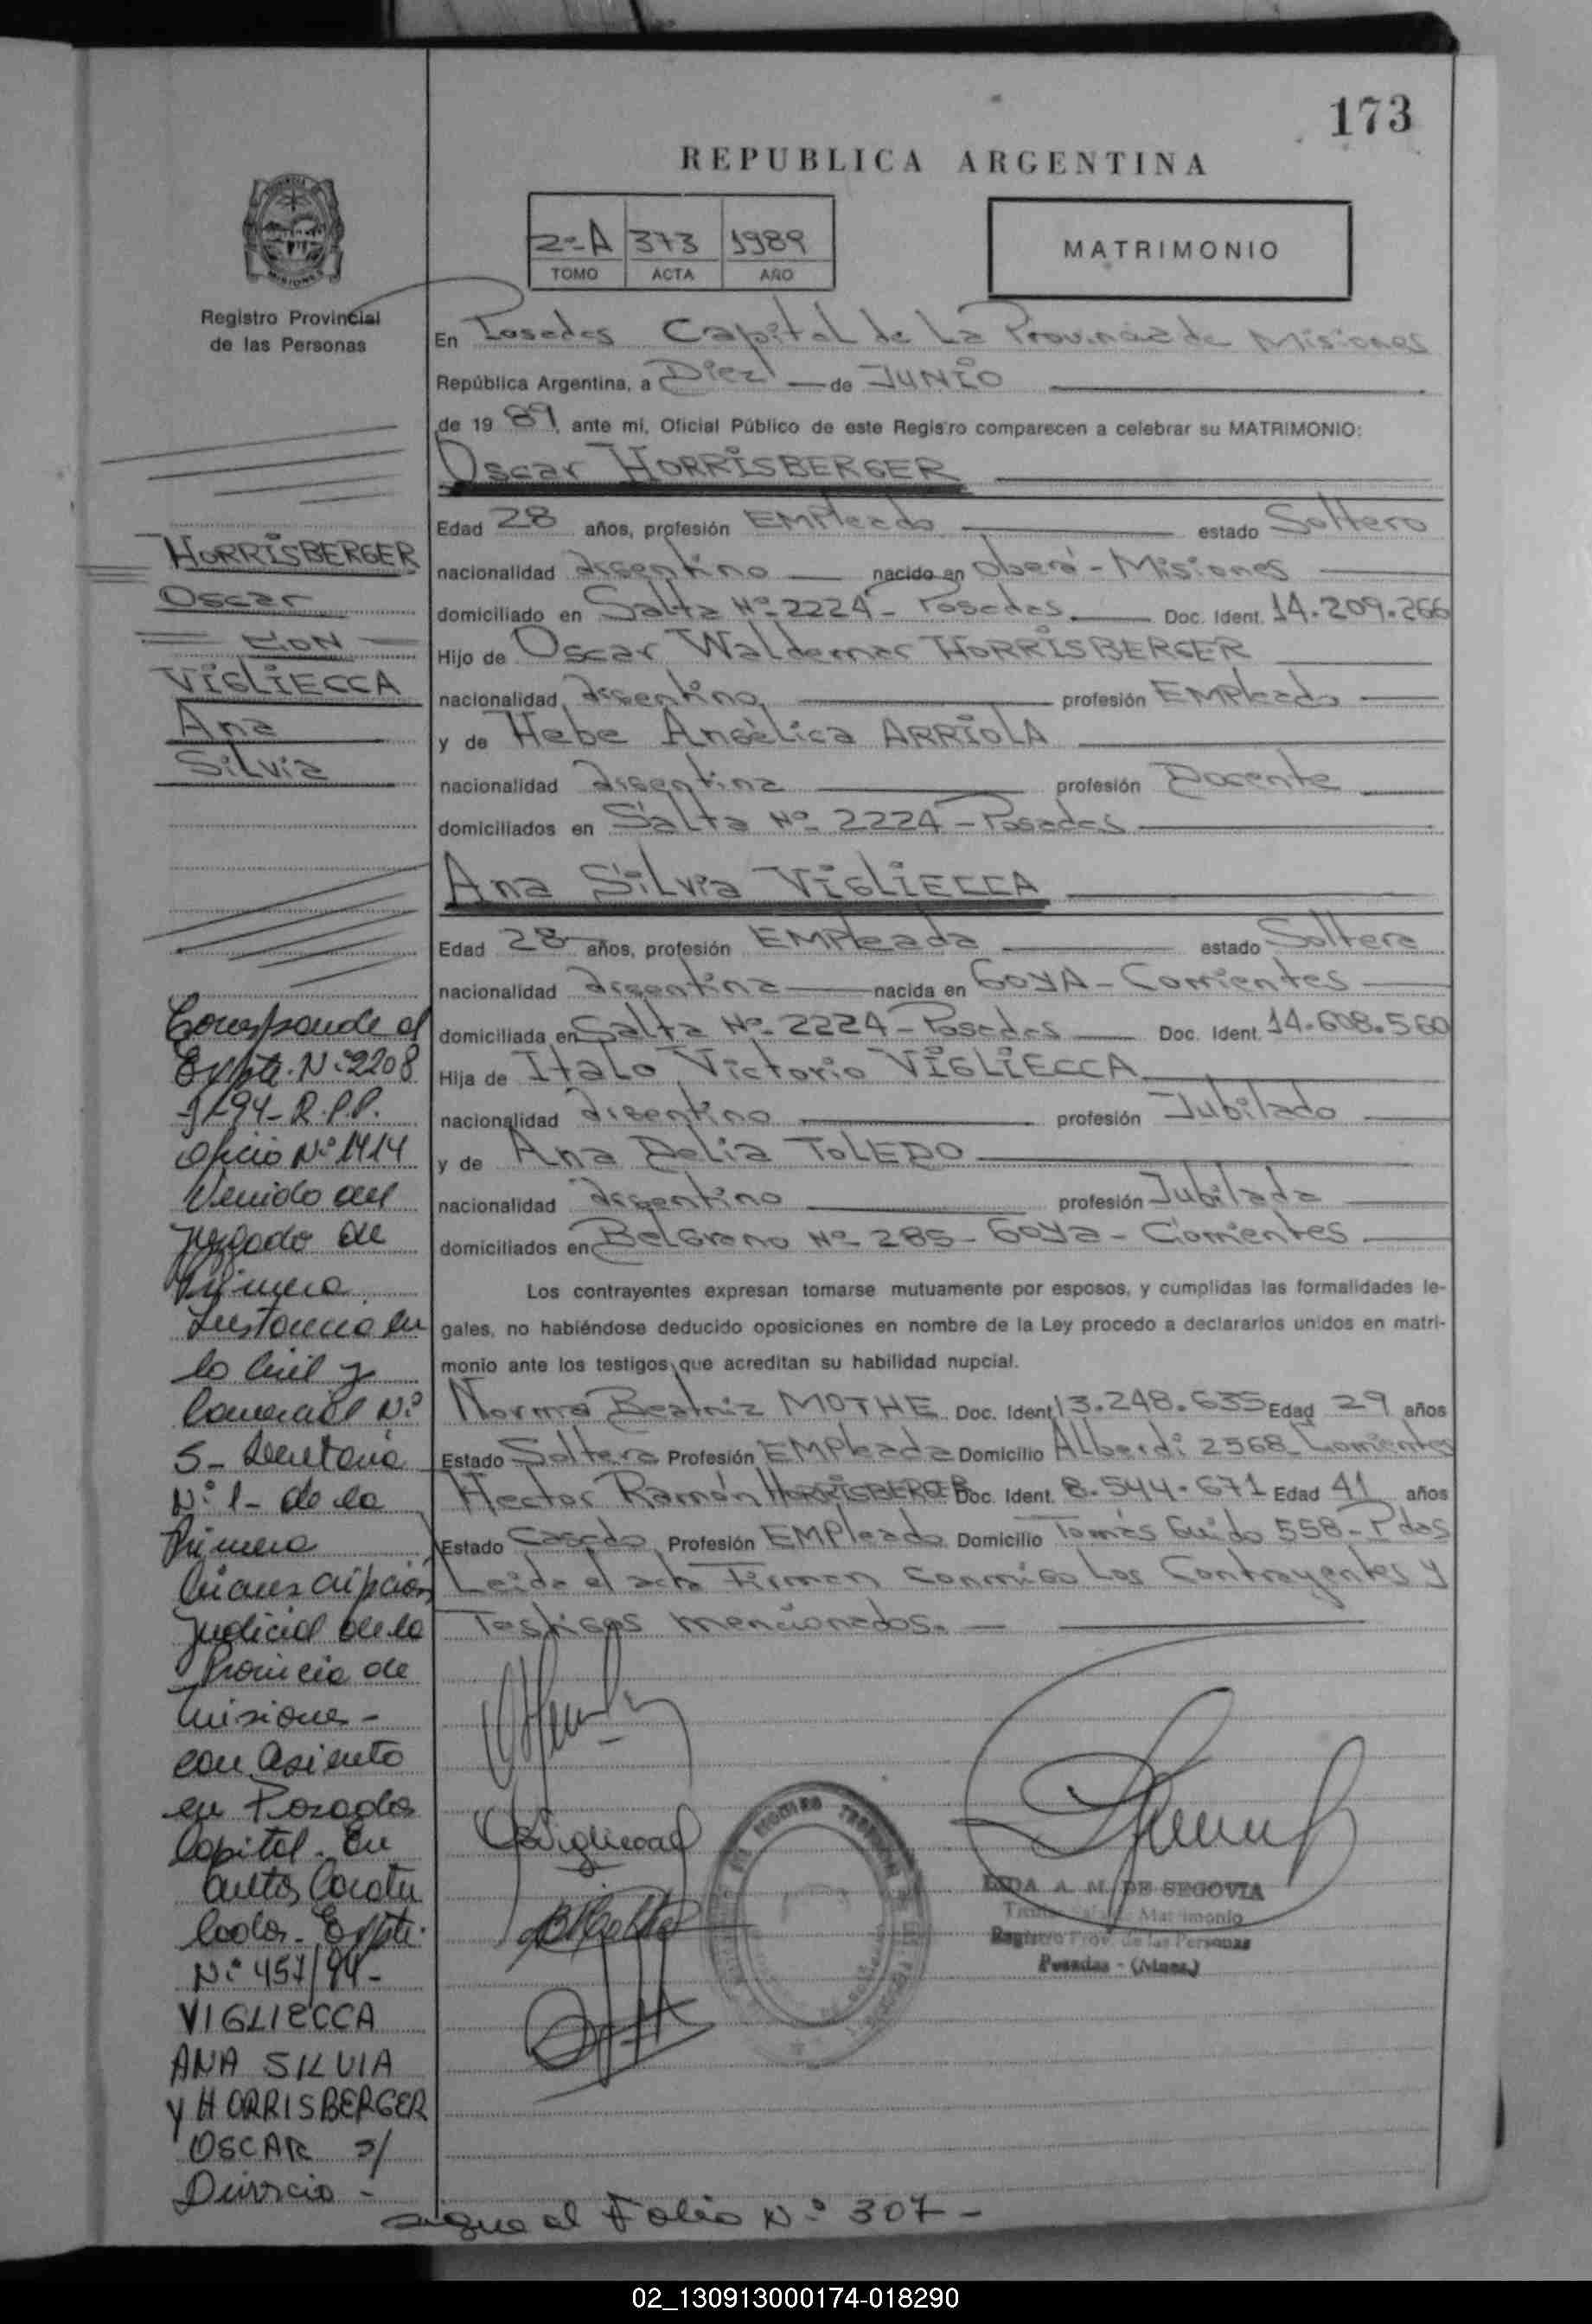 173
REPUBLICA ARGENTINA
2º A 373 1989
TOMO ACTA AÑO
MATRIMONIO
Registro Provincial
de las Personas
En Posadas Capital de La Provincia de Misiones
República Argentina, a Diez — de JUNIO
de 19 89, ante mí, Oficial Público de este Registro comparecen a celebrar su MATRIMONIO:
Oscar HORRISBERGER
Edad 28 años, profesión EMPleado estado Soltero
nacionalidad Argentino nacido en Oberá - Misiones
domiciliado en Salta Nº 2224 - Posadas Doc. Ident. 14.209.266
Hijo de Oscar Waldemar HORRISBERGER
nacionalidad Argentino profesión EMPleado
y de Hebe Angèlica ARRIOLA
nacionalidad Argentina profesión Docente
domiciliados en Salta Nº 2224 - Posadas
Ana Silvia VIGLIECCA
Edad 28 años, profesión EMPleada estado Soltera
nacionalidad Argentina nacida en GOYA - Corrientes
domiciliada en Salta Nº 2224 - Posadas Doc. Ident. 14.608.560
Hija de Italo Victorio VIGLIECCA
nacionalidad Argentino profesión Jubilado
y de Ana Delia TOLEDO
nacionalidad Argentino profesión Jubilada
domiciliados en Belgrano Nº 285 - Goya - Corrientes
Los contrayentes expresan tomarse mutuamente por esposos, y cumplidas las formalidades le-
gales, no habiéndose deducido oposiciones en nombre de la Ley procedo a declararlos unidos en matri-
monio ante los testigos que acreditan su habilidad nupcial.
Norma Beatriz MOTHE Doc. Ident. 13.248.635 Edad 29 años
Estado Soltera Profesión EMPleada Domicilio Alberdi 2568 - Corrientes
Hector Ramón HORRISBERGER Doc. Ident. 8.544.671 Edad 41 años
Estado Casado Profesión EMPleado Domicilio Tomás Guido 558 - Pdas
Leida el acta Firman conmigo Los Contrayentes y
Testigos mencionados.
HORRISBERGER
Oscar
CON
VIGLIECCA
Ana
Silvia
Corresponde al
Expte. Nº 2208
-J-94- R.P.P.
Oficio Nº 1414
Venido del
Juzgado de
Primera
Instancia en
lo Civil y
Comercial Nº
5 - Secretaría
Nº 1 - de la
Primera
Circunscripción
Judicial de la
Provincia de
Misiones -
con asiento
en Posadas
Capital. En
autos Caratu
lados. Expte.
Nº 457/94 -
VIGLIECCA
ANA SILVIA
Y HORRISBERGER
OSCAR s/
Divorcio -
sigue al Folio Nº 307 -
A. M. DE SEGOVIA
Matrimonio
Registro Prov. de las Personas
Posadas - (Mnes.)
02_130913000174-018290